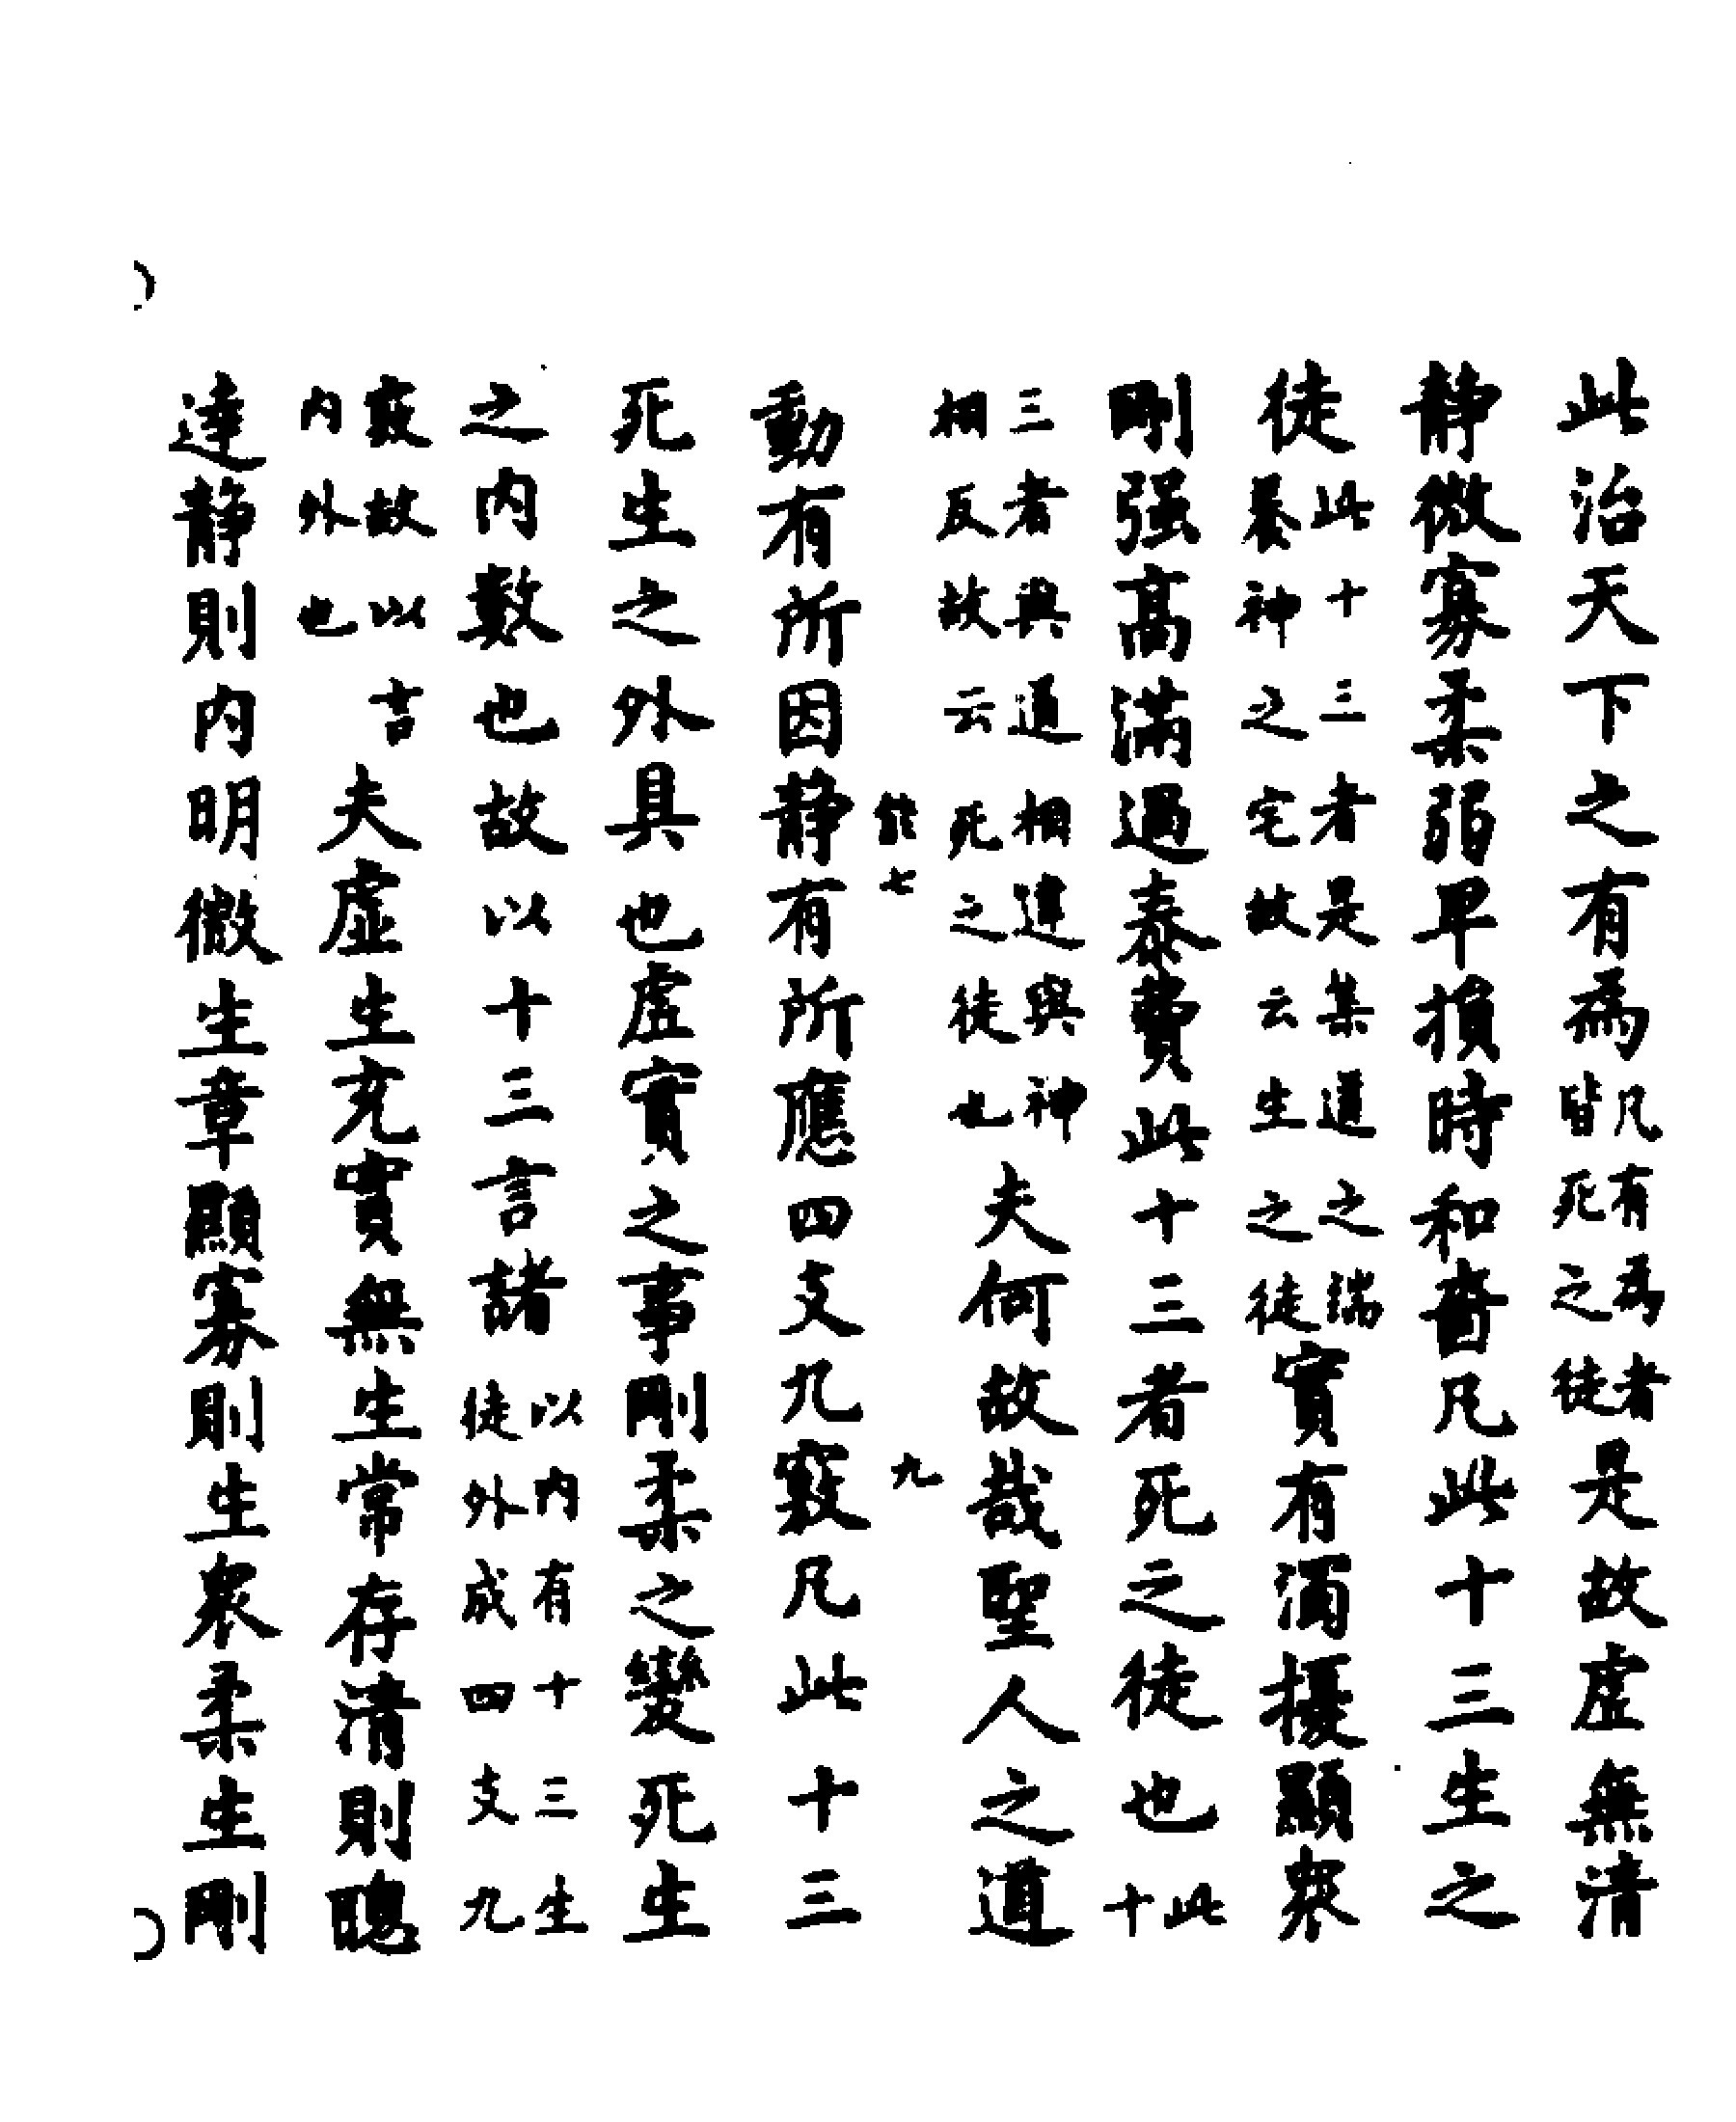 此治天下之有為凡有為者皆死之徒是故虛無清
静微寡柔弱卑損時和嗇凡此十三生之
徒此十三者是集道之端養神之宅故云生之徒實有濁擾顯衆
剛强高滿過泰費此十三者死之徒也此十
三者與道相違與神相反故云死之徒也夫何故哉聖人之道
能七 九
動有所因静有所應四支九竅凡此十三
死生之外具也虛實之事剛柔之變死生
之内數也故以十三言諸以内有十三生徒外成四支九
竅故以言内外也夫虛生充實無生常存清則聰
達静則内明微生章顯寡則生衆柔生剛